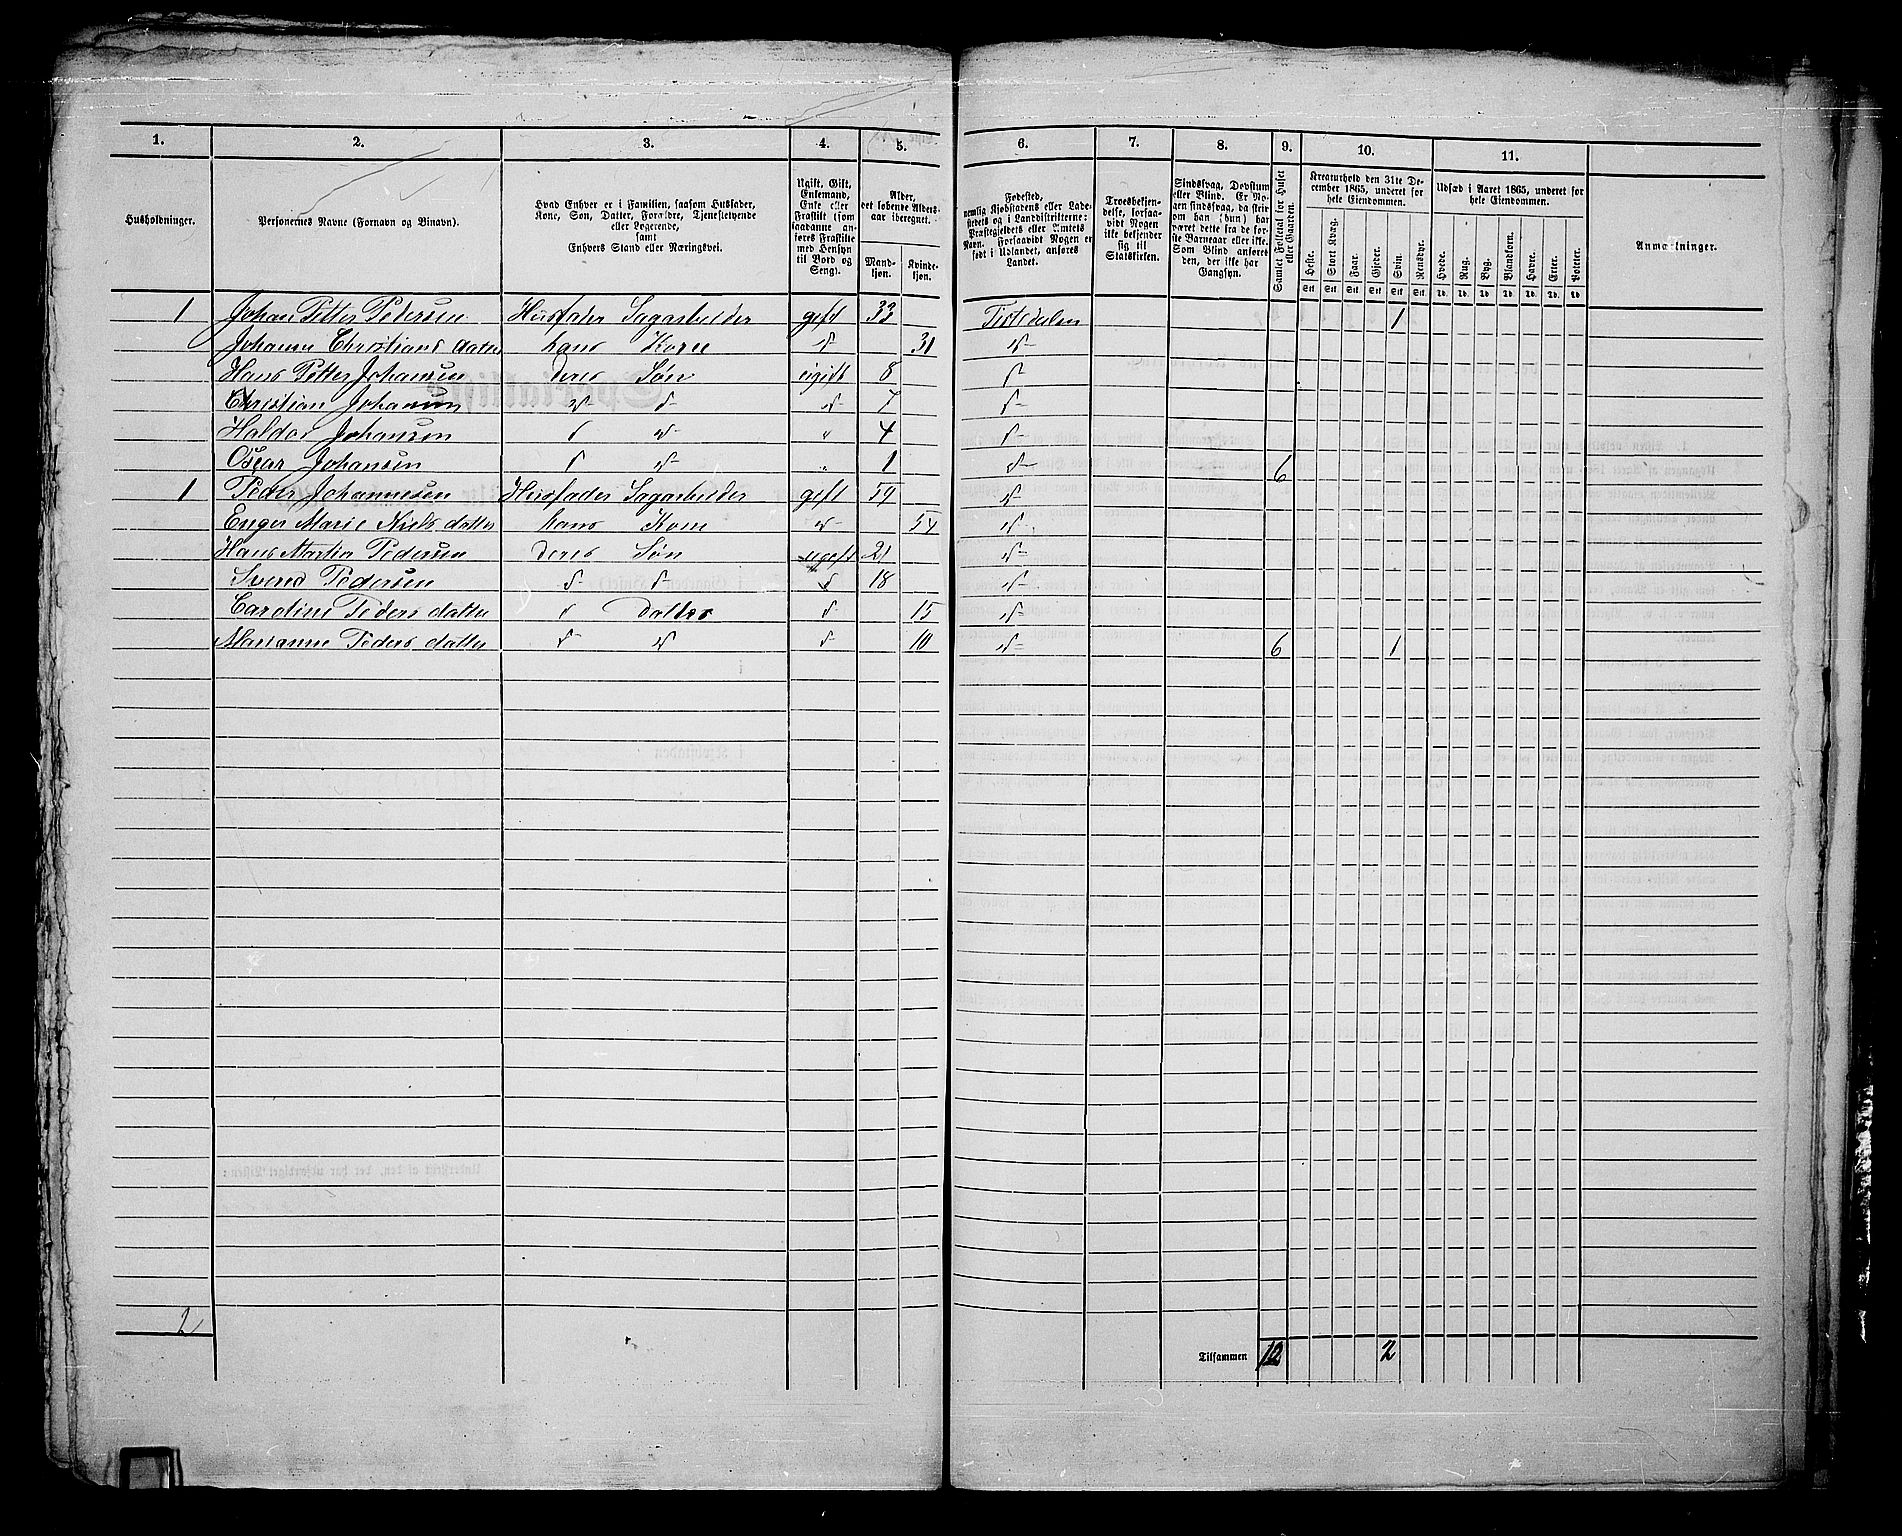 1. 2. 3. 4. 5. 6. 7. 8. 9. 10. 11.
Husholdninger.
Personernes Navne (Fornavn og Binavn).
Hvad Enhver er i Familien, saasom Husfader,
Kone, Søn, Datter, Forældre, Tjenestetyende
eller Logerende,
samt
Enhvers Stand eller Næringsvei.
Ugift, Gift,
Enkemand,
Enke eller
Fraskilt (som
saadanne an-
føres Fraskilte
med Hensyn
til Bord og
Seng).
Alder,
det løbende Alders-
aar iberegnet.
Mand-
kjøn.
Kvinde-
kjøn.
Fødested,
nemlig Kjøbstadens eller Lade-
stedets og i Landdistrikterne:
Præstegjeldets eller Amtets
Navn. Forsaavidt Nogen er
født i Udlandet, anføres
Landet.
Troesbekjen-
delse, forsaa-
vidt Nogen
ikke bekjender
sig til
Statskirken.
Sindssvag, Døvstum
eller Blind. Er No-
gen sindssvag, da skri-
ves om han (hun) har
været dette fra de før-
ste Barneaar eller ikke.
Som Blind anføres
den, der ikke har
Gangsyn.
Samlet Folketal for Huset
eller Gaarden.
Kreaturhold den 31te De-
cember 1865, underet for
hele Eiendommen.
Heste. Stort Kvæg. Faar. Gjeder. Svin. Rensdyr.
Stk Stk Stk Stk Stk Stk
Udsæd i Aaret 1865, underet for
hele Eiendommen.
Hvede. Rug. Byg. Blandkorn. Havre. Erter. Poteter.
Td. Td. Td. Td. Td. Td. Td.
Anmærkninger.
1 Johan Petter Pedersen Husfader Sagarbeider gift 33 Tistedalen 1
Johanne Christians datter hans Kone d 31 d
Hans Petter Johansen deres Søn ugift 8 d
Christian Johansen d d d 7 d
Haldor Johansen d d " 4 d
Oscar Johansen d d " 1 d 6
1 Peder Johannesen Husfader Sagarbeider gift 54 d
Enger Marie Niels datter hans Kone d 54 d
Hans Martin Pedersen deres Søn ugift 21 d
Svend Pedersen d d d 18 d
Caroline Peders datter d Datter d 15 d
Marianne Peders datter d d d 10 d 6 1
2
Tilsammen 12 2